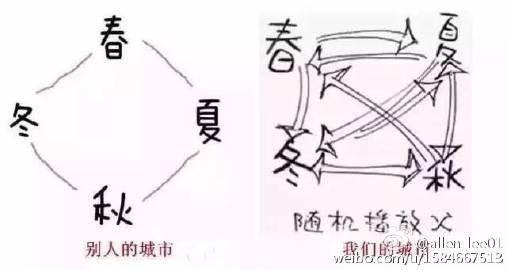 春
冬
夏
秋
别人的城市
春
夏
冬
秋
随机播放
我们的城市
@allen_lee01
weibo.com/u/1584667513